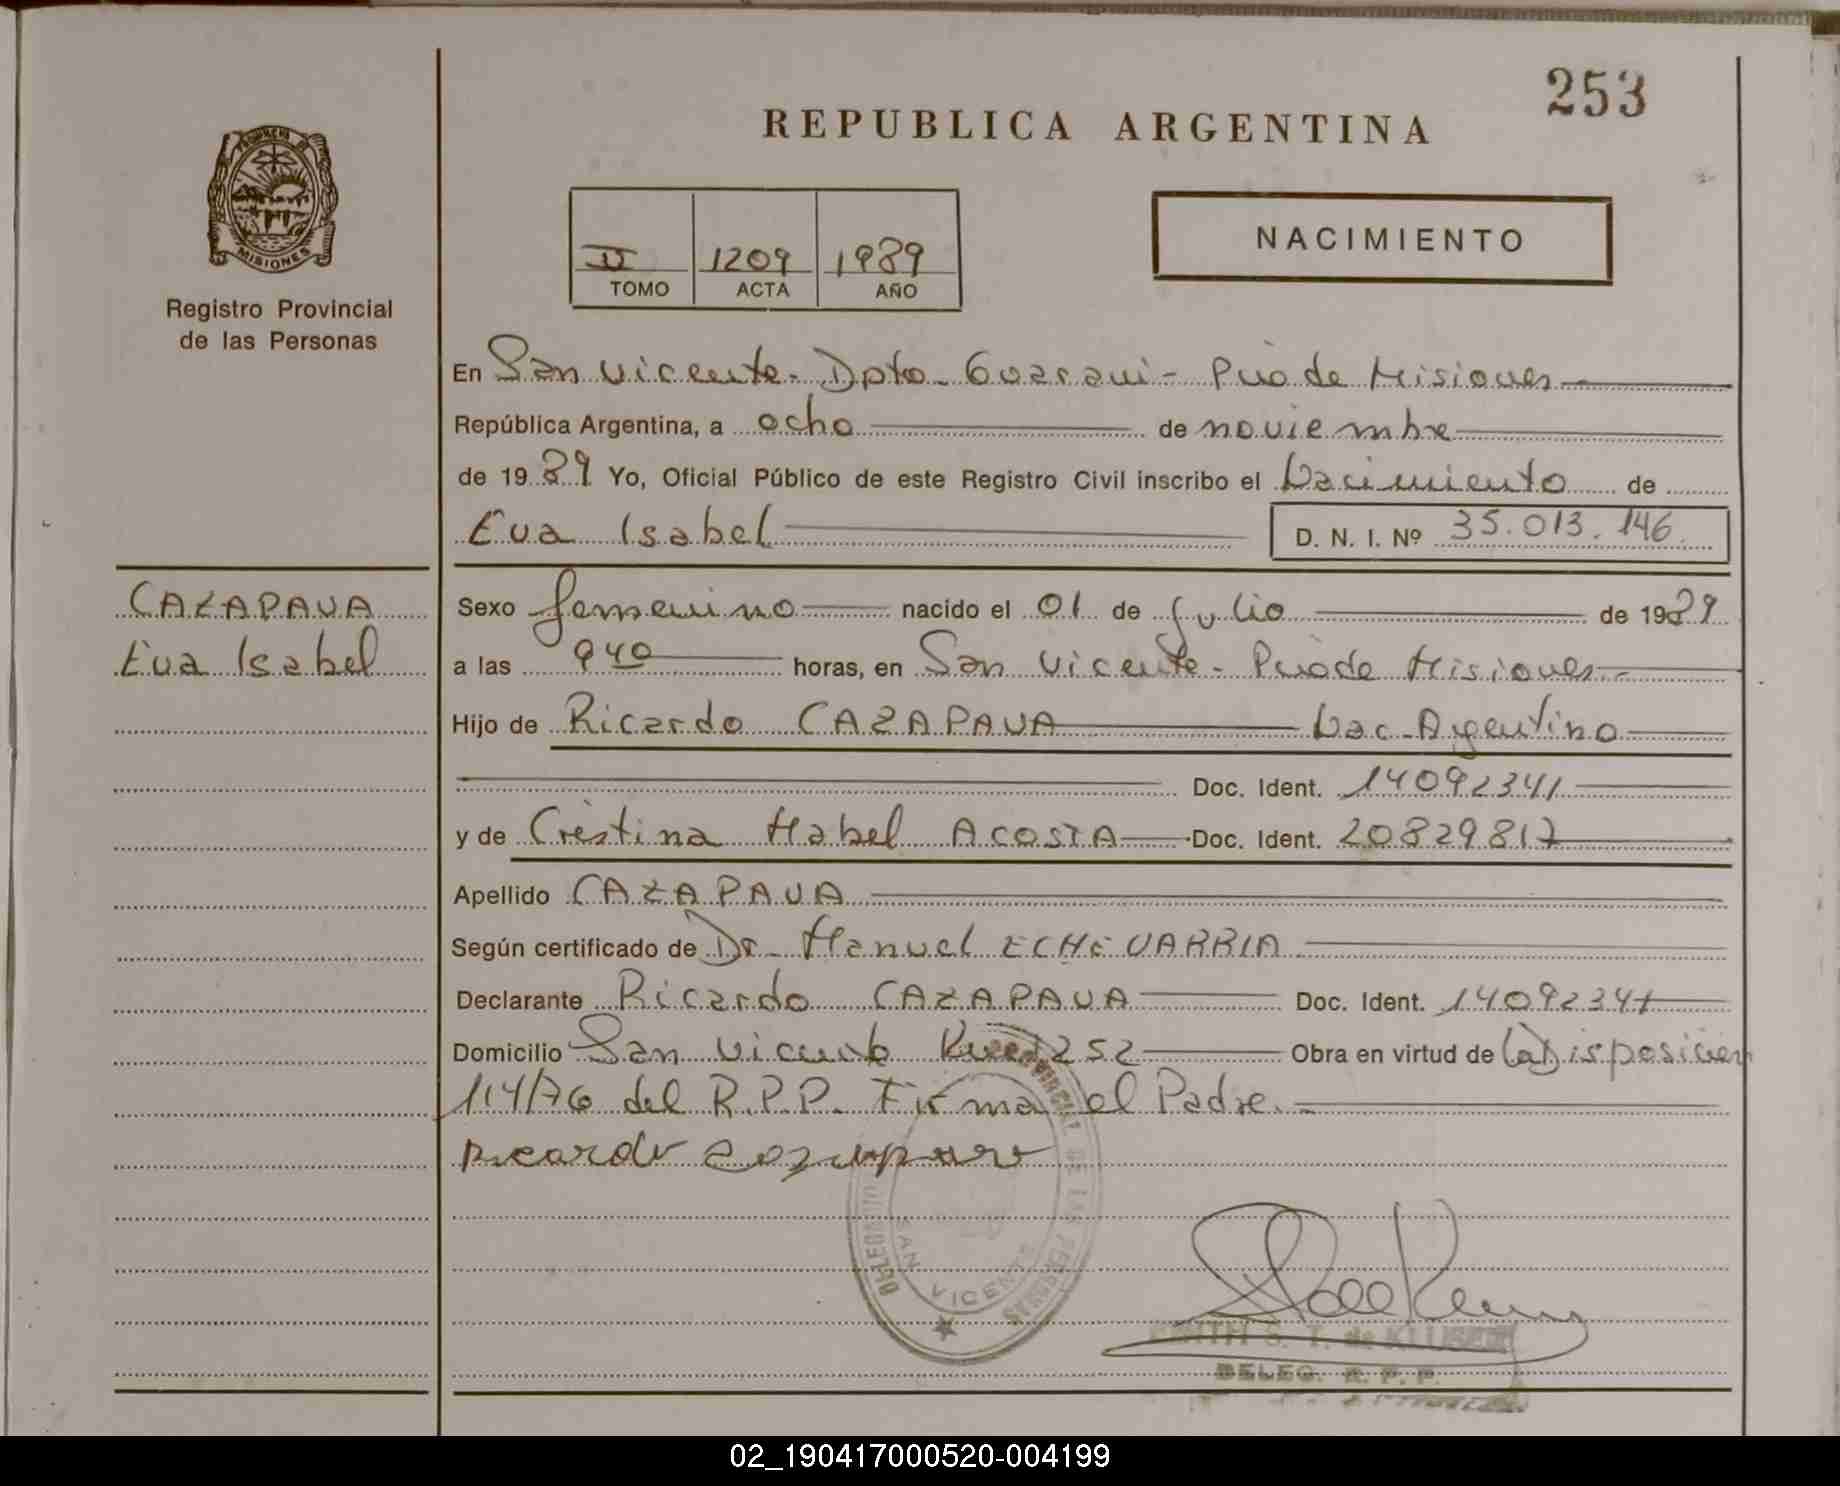 253
REPUBLICA ARGENTINA
PROVINCIA DE
MISIONES
Registro Provincial
de las Personas
II 1209 1989
TOMO ACTA AÑO
NACIMIENTO
En San Vicente - Dpto - Guarani - Pcia de Misiones
República Argentina, a ocho de noviembre
de 1989 Yo, Oficial Público de este Registro Civil inscribo el Nacimiento de
Eva Isabel D. N. I. Nº 35.013.146
CAZAPAVA
Eva Isabel
Sexo femenino nacido el 01 de Julio de 1989
a las 9 40 horas, en San Vicente - Pcia de Misiones
Hijo de Ricardo CAZAPAVA Nac. Argentino
Doc. Ident. 14092341
y de Cristina Mabel ACOSTA Doc. Ident. 20829817
Apellido CAZAPAVA
Según certificado de Dr. Manuel ECHEVARRIA
Declarante Ricardo CAZAPAVA Doc. Ident. 14092341
Domicilio San Vicente 1252 Obra en virtud de (a) Disposicion
114/76 del R.P.P. Firma el Padre.
Ricardo
DE LAS PERSONAS
SAN VICENTE
S. T. de KLUSENER
DELEG. R. P. P.
02_190417000520-004199